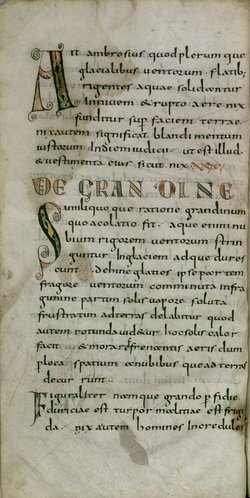 Ait ambrosius quod plerumque
glacialibus ventorum flatib;
rigentes aquae solidentur
In nivem & rupto aere nix
funditur sup faciem terrae.
nix autem significat blandimentum
iustorum In die iudicii. ut est illud
& vestimenta eius sicut nix
DE GRANDINE
Simili quoque ratione grandinum
quo acolatio fit. aque enim nu
bium rigorem ventorum strin
guitur In glaciem ad que dures
cunt. Dehinc glaties ipse portem
fragore ventorum comminuta infra
gunine partim solis vapore soluta
frustratim ad terras delabitur quod
autem rotunda vid&ur. hoc solis calor
facit & mora refrenentis aeris dum
p loca spatium cenubibus que ad terras
decurrunt
Figuraliter namque grando p fidie
duriciae est turpor malitiae est frigi
da. nix autem homines Incredules